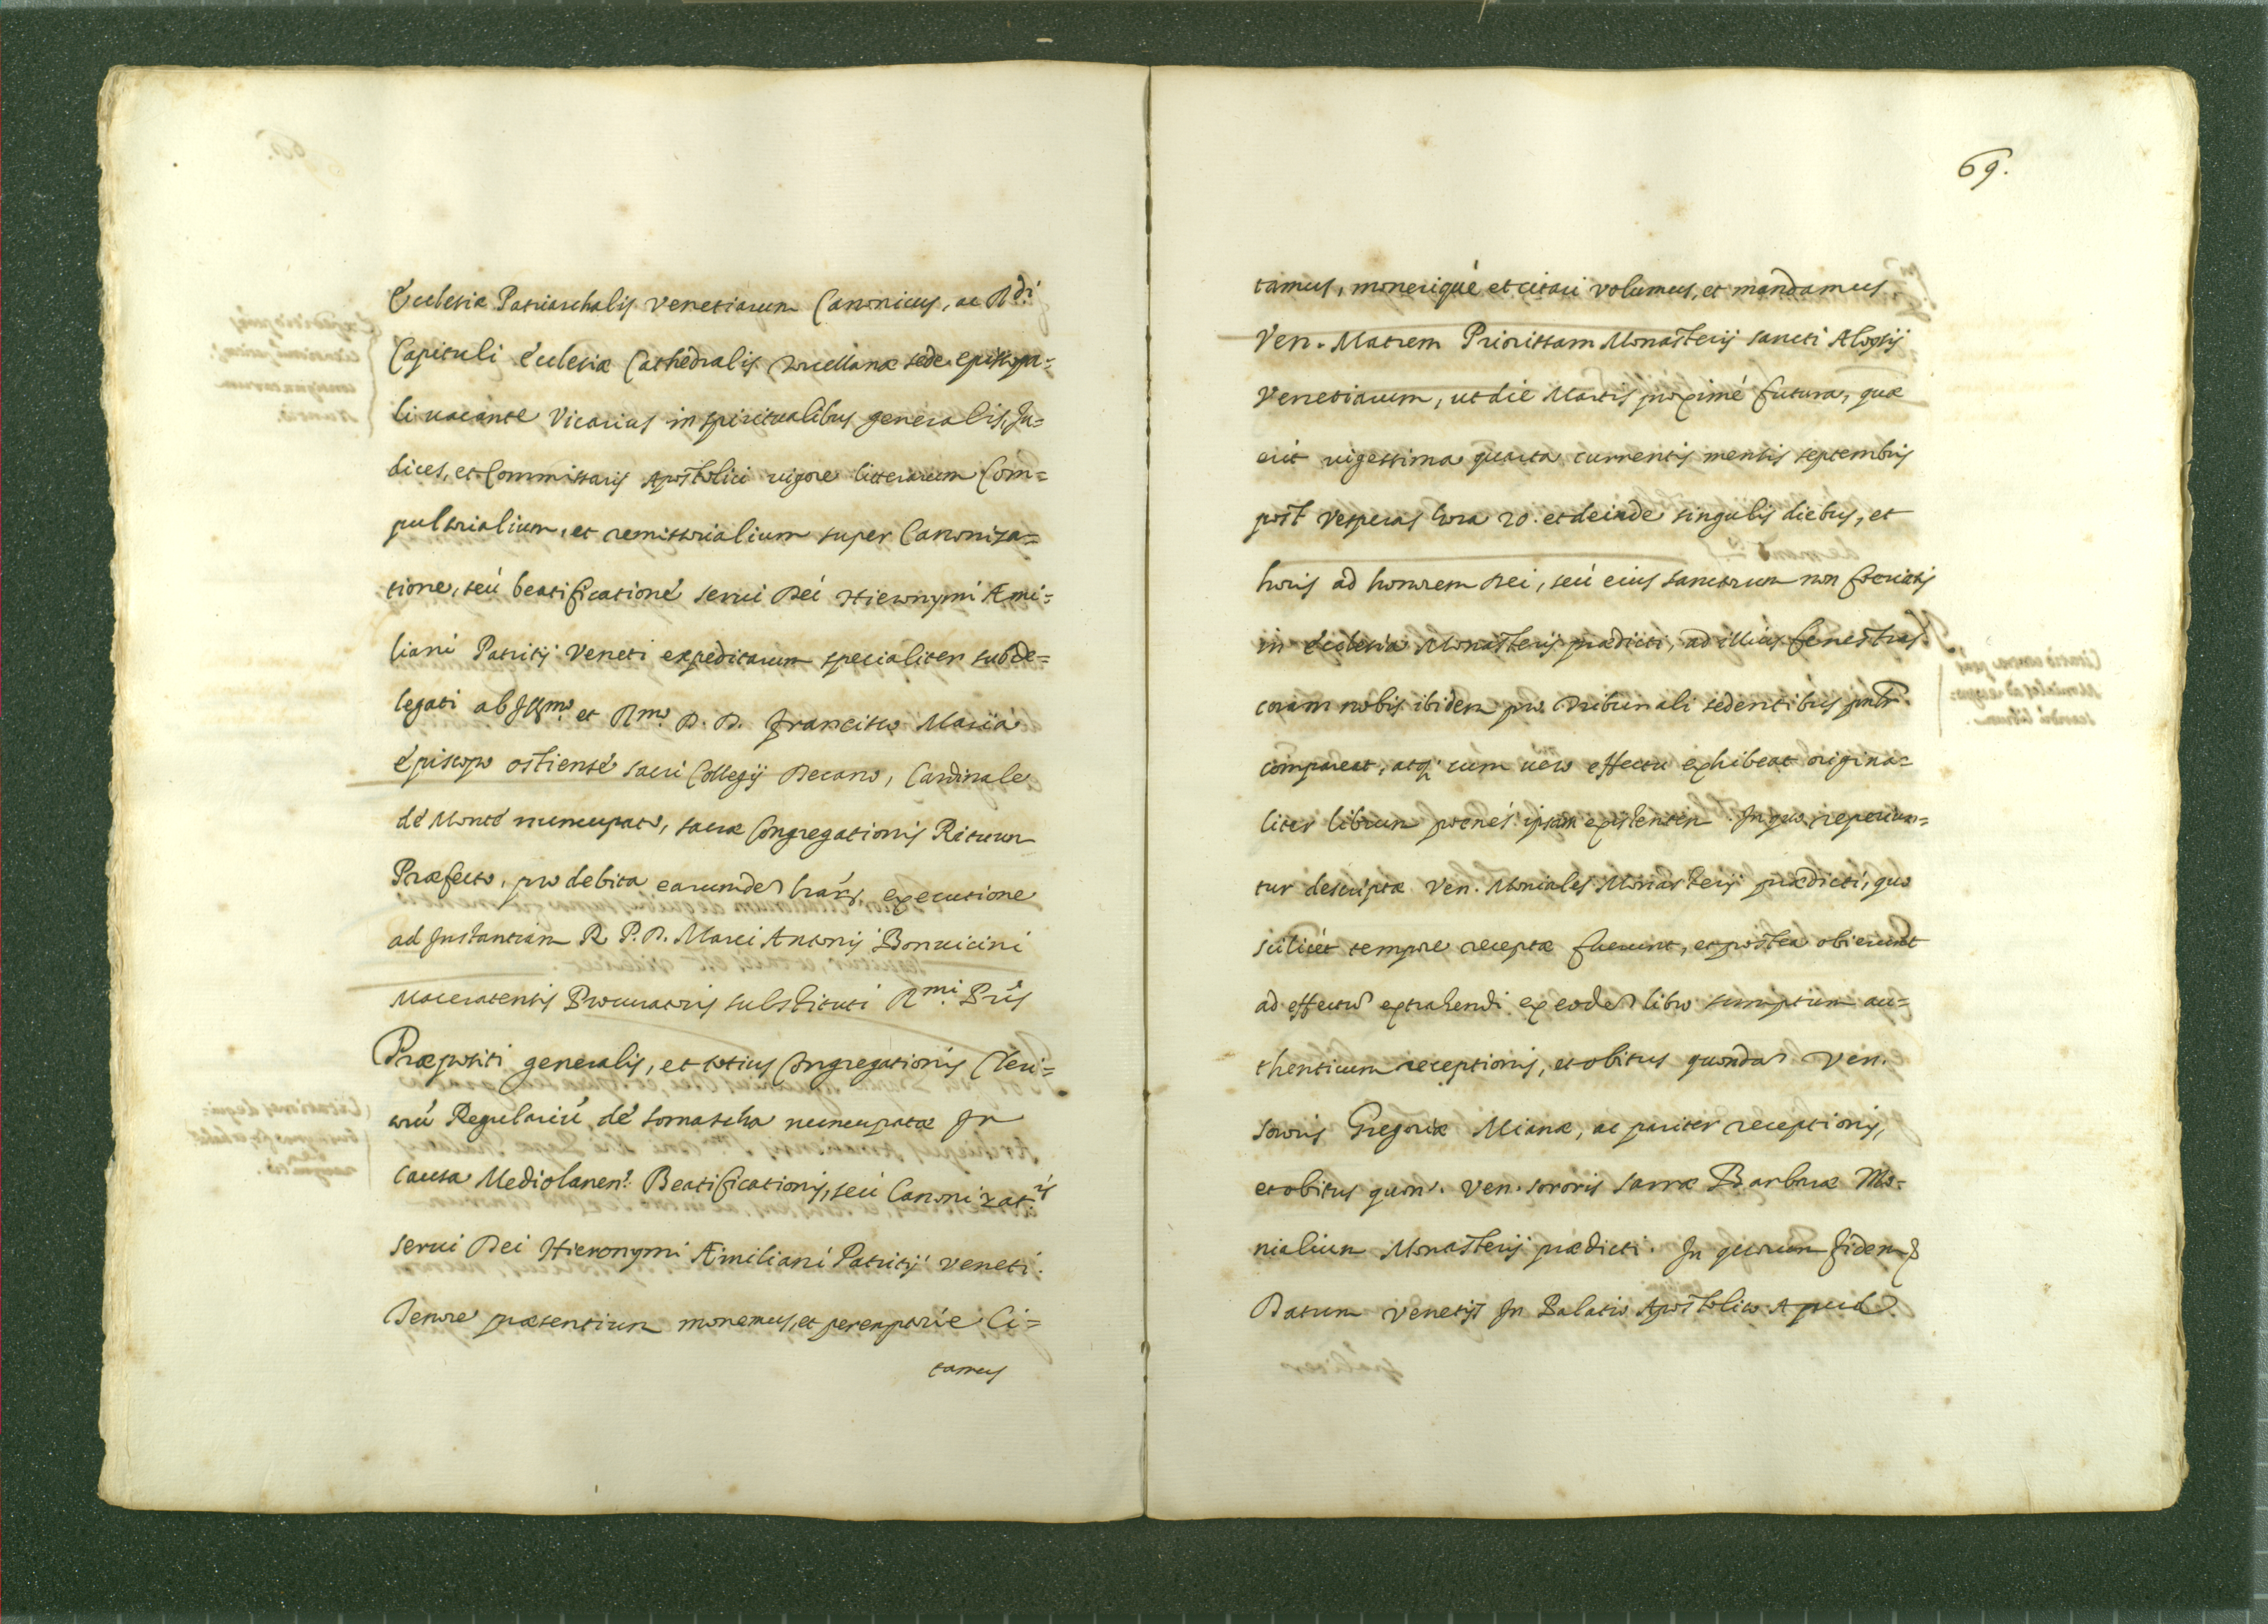 Ecclesiæ Patriarchalis Venetiarum Canonicus, ac R.di
Capituli Ecclesiæ Cathedralis Torcellanæ sede episcopa=
li uacante Vicarius in spiritualibus generalis, Ju=
dices, et Commissarij Apostolici uigore litterarum Com=
pulsorialium, et remissorialium super Canoniza=
tione, seù beatificatione serui Dei Hieronymi Æmi=
liani Patritij Veneti expeditarum specialiter subde=
legati ab Ill.mo et R.mo D. D. Francisco Maria
Episcopo ostiense sacri Collegij Decano, Cardinale
de Monte nuncupato, sacræ Congregationis Rituum
Præfecto, pro debita earumdē executione
ad Instantiam R. P. D. Marci Antonij Bonuicini
Maceratensis Procuratoris substituti R.mi Pris
Præpositi generalis, et totius Congregationis Cleri=
corū Regulariū de somascha nuncupatæ In
causa Mediolanen. Beatificationis, seù Canonizat.is
serui Dei Hieronymi Æmiliani Patritij Veneti.
Tenore præsentium monemus, et peremptorie Ci=
tamus
69.
tamus, monerique et citari volumus, et mandamus
Ven. Matrem Priorissam Monasterij sancti Aloysij
Venetiarum, ut die Martis proximé futura, quæ
erit uigessima quarta currentis mensis septembris
post Vesperas hora 20. et deinde singulis diebus, et
horis ad honorem Dei, seù eius sanctorum non feriatis
in Ecclesia Monasterij prædicti, ad illius fenestras
coram nobis ibidem pro Tribunali sedentibus
compareat, atq; cum uero effectu exhibeat origina=
liter librum poenés ipsam existentem. In quo reperiun=
tur descriptæ Ven. Moniales Monasterij prædicti, quo
scilicét tempore receptæ fuerunt, et postea obierunt
ad effectū extrahendi ex eodē libro sumptum au=
thenticum receptionis, et obitus quondā Ven.
sororis Gregoriæ Mianæ, ac pariter receptionis,
et obitus quon. Ven. sororis Barbaræ Mo=
nialium Monasterij prædicti. In quorum fidem
Datum Venetijs In Palatio Apostolico Apud